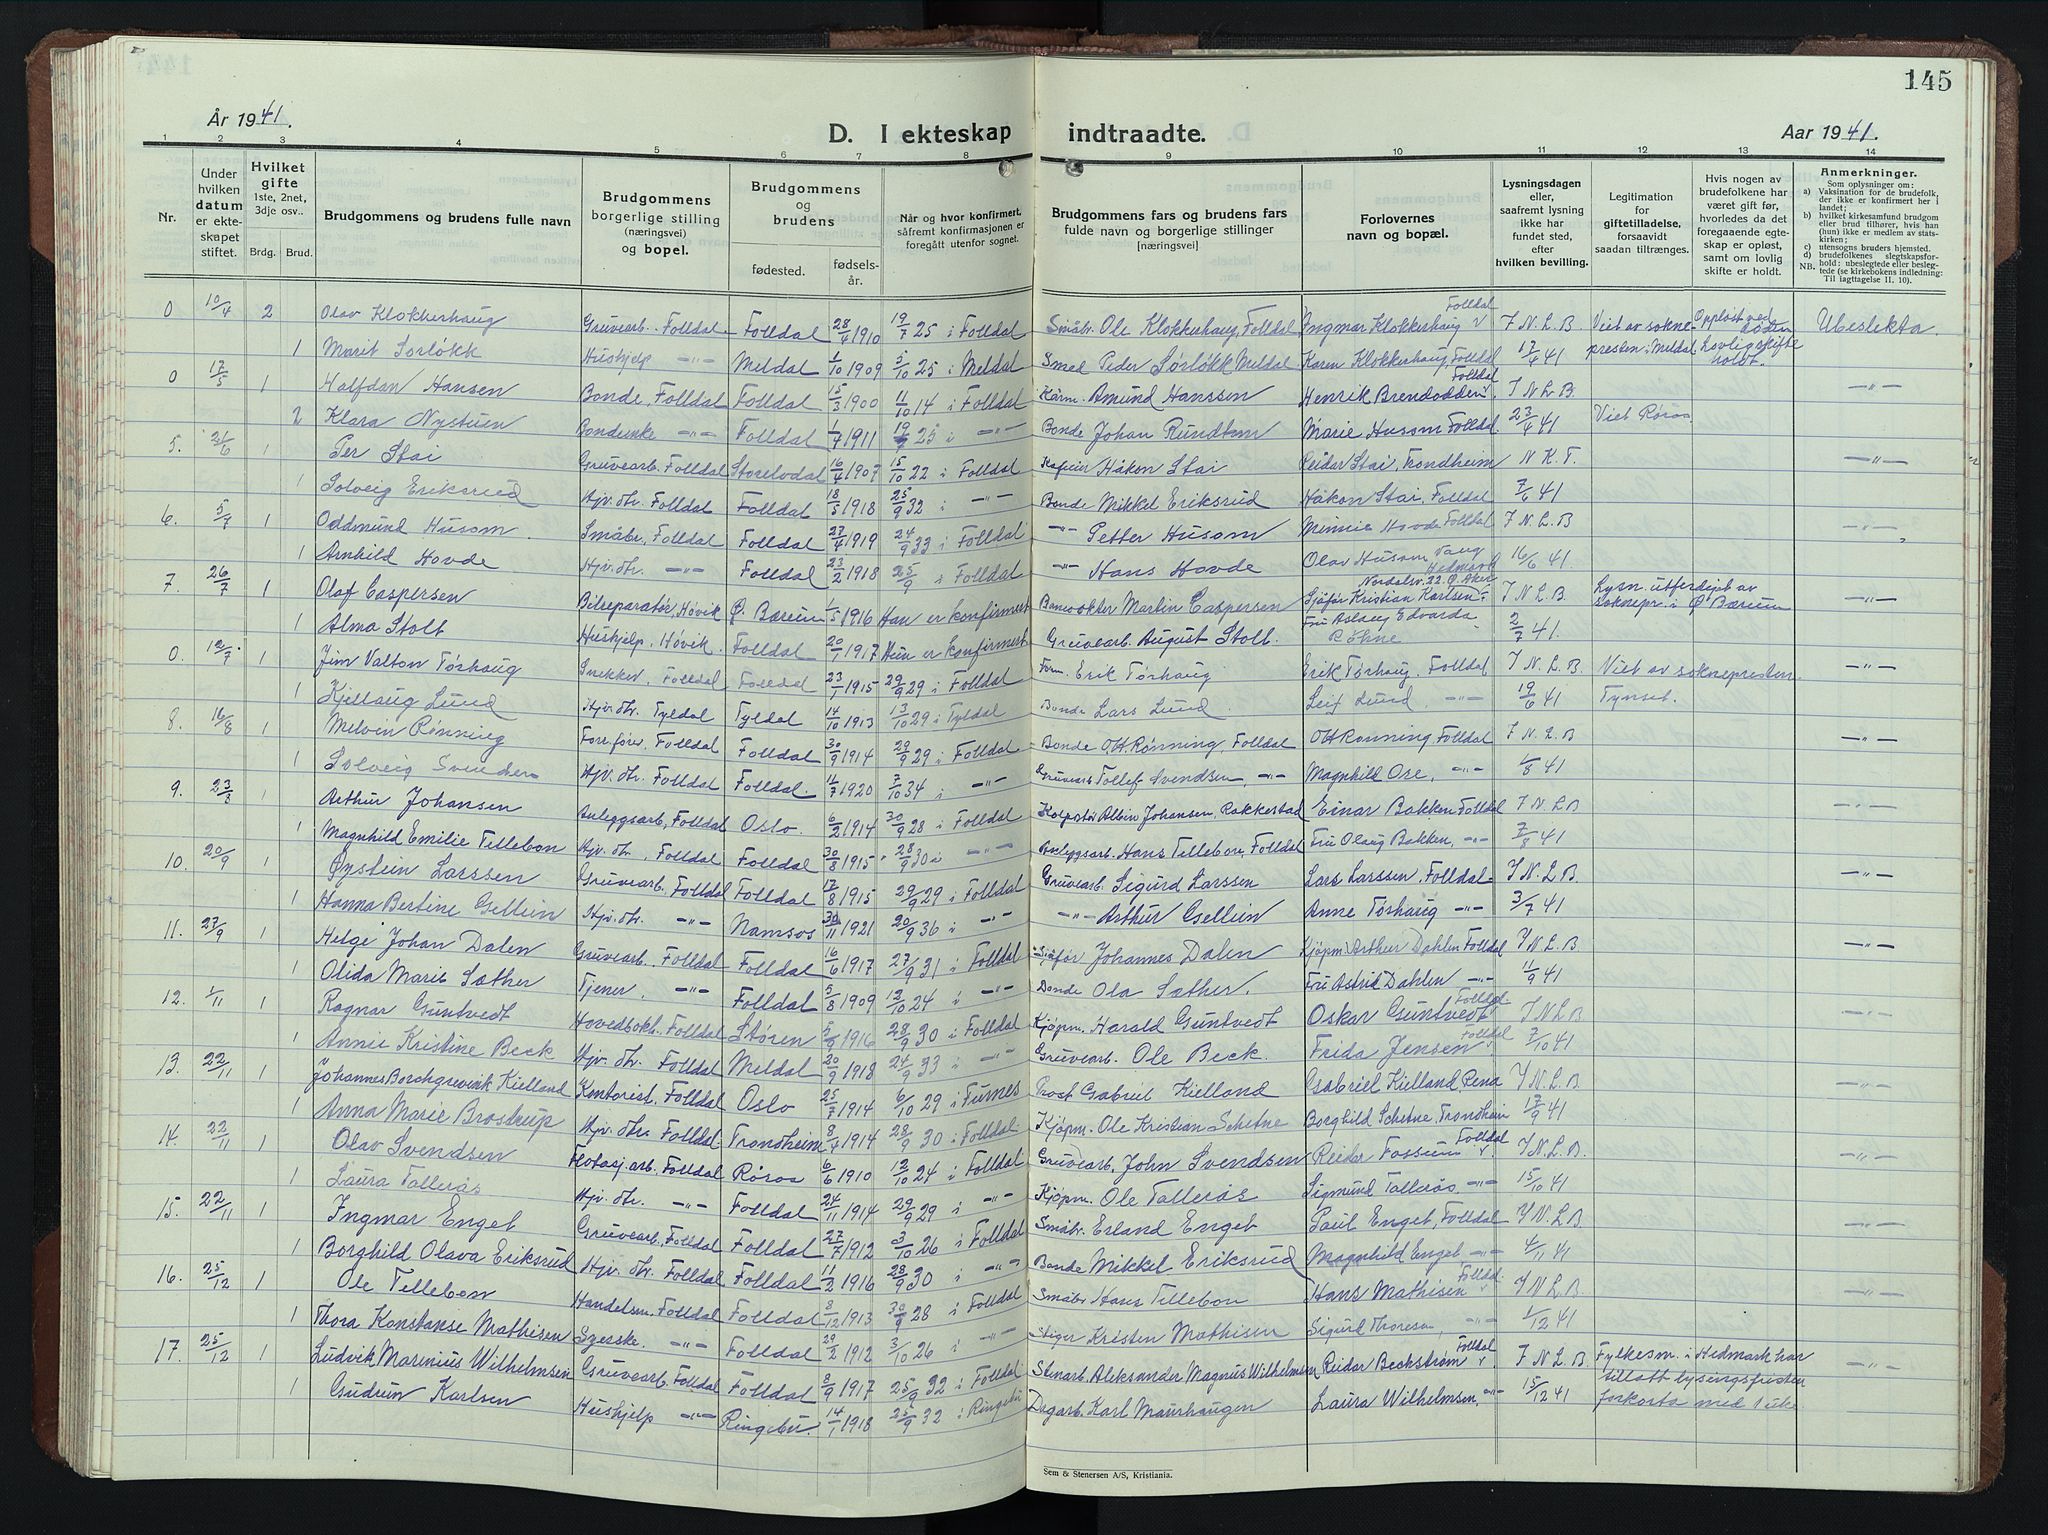 145
År 1941.
D. I ekteskap indtraadte.
Aar 1941.
1 2 3 4 5 6 7 8 9 10 11 12 13 14
Nr.
Under hvilken datum er ekteskapet stiftet.
Hvilket gifte 1ste, 2net, 3dje osv..
Brdg. Brud.
Brudgommens og brudens fulle navn
Brudgommens borgerlige stilling (næringsvei) og bopel.
Brudgommens og brudens
fødested. fødselsår.
Når og hvor konfirmert, såfremt konfirmasjonen er foregått utenfor sognet.
Brudgommens fars og brudens fars fulde navn og borgerlige stillinger [næringsvei]
Forlovernes navn og bopæl.
Lysningsdagen eller, saafremt lysning ikke har fundet sted, efter hvilken bevilling.
Legitimation for giftetilladelse, forsaavidt saadan tiltrænges.
Hvis nogen av brudefolkene har været gift før, hvorledes da det foregaaende egteskap er opløst, samt om lovlig skifte er holdt.
Anmerkninger.
Som oplysninger om:
a) Vaksination for de brudefolk, der ikke er konfirmert her i landet;
b) hvilket kirkesamfund brudgom eller brud tilhører, hvis han (hun) ikke er medlem av statskirken;
c) utensogns bruders hjemsted.
d) brudefolkenes slegtskapsforhold: ubeslegtede eller beslegtede (se kirkebokens indledning: Til iagttagelse II, 10).
NB.
0 10/4 2 Olav Klokkerhaug Gruvearb. Folldal Folldal 28/4 1910 19/7 25 i Folldal Småbr. Ole Klokkerhaug, Folldal Ingmar Klokkerhaug Folldal F. N. L. B Viet av sokne- Oppløst ved døden Ubeslekta
1 Marit Sørløkk Hushjelp -"- Meldal 1/10 1909 5/10 25 i Meldal Smed Peder Sørløkk Meldal Karen Klokkerhaug, Folldal 17/4 41 presten i Meldal Lovlig skifte holdt.
0 17/5 1 Halfdan Hansen Bonde, Folldal Folldal 15/3 1900 11/10 14 i Folldal Amund Hanssen Henrik Brendodden Folldal F. N. L. B. -"-
2 Klara Nystuen -"- Folldal 1/7 1911 19/7 25 i -"- Bonde Johan Rundtom Marie Husom Folldal 23/4 41 Viet Røros
5. 21/6 1 Per Stai Gruvearb. Folldal Storelvdal 16/4 1907 15/10 22 i Folldal Håkon Stai Reidar Stai, Trondheim N. K. T. -"-
1 Solveig Eriksrud Hjv. dtr. Folldal Folldal 18/5 1918 25/9 32 i -"- Bonde Mikkel Eriksrud Håkon Stai, Folldal 7/6 41
6. 5/7 1 Oddmund Husom Småbr, Folldal Folldal 27/4 1919 24/9 33 i Folldal -"- Petter Husom Minnie Hovde Folldal F. N. L. B -"-
1 Arnhild Hovde Hjv. dtr. -"- Folldal 23/2 1918 25/9 i Folldal -"- Hans Hovde Olav Husom Vang Hedmark 16/6 41.
7. 26/7 1 Olaf Caspersen Bilreparatør, Høvik Ø. Bærum 1/5 1916 Han er konfirmert Banevokter Martin Caspersen Sjåfør Kristian Karlsen Nordalsv. 22. Ø. Aker F. N. L. B. Lysn. utferdigt av soknepr. i Ø. Bærum -"-
1 Alma Stolt Hushjelp, Høvik Folldal 20/1 1917 Hun er konfirmert Gruvearb. August Stolt. Fru Aslaug Edvarda Røhne 2/7 41.
0. 12/7 1 Jim Valton Tørhaug Snekker, Folldal Folldal 23/1 1915 29/9 29 i Folldal Form. Erik Tørhaug Erik Tørhaug, Folldal F. N. L. B. Viet av soknepresten -"-
1 Kjellaug Lund Hjv. dtr. Tyldal Tyldal 14/10 1913 13/10 29 i Tyldal Bonde Lars Lund Leif Lund -"- 19/6 41 Tynset.
8. 16/8 1 Melvin Rønning Folldal Folldal 30/9 1914 29/9 29 i Folldal Bonde Ott Rønning, Folldal Ott Rønning, Folldal F. N. L. B -"-
1 Solveig Svendsen Hjv. dtr. Folldal Folldal 11/7 1920 7/10 34 i -"- Gruvearb Tollef Svendsen, -"- Magnhild Ore, -"- 1/8 41
9. 23/8 1 Arthur Johansen Anleggsarb, Folldal Oslo. 6/2 1914 30/9 28 i Folldal Albin Johansen, Rakkestad Einar Bakken Folldal F. N. L. B -"-
1 Magnhild Emilie Tillebon Hjv. dtr. Folldal Folldal 30/8 1915 28/9 30 i -"- Anleggsarb. Hans Tillebon, Folldal Fru Olaug Bakken, -"- 7/8 41
10. 20/9 1 Øystein Larssen Gruvearb. Folldal Folldal 17/8 1915 29/9 29 i Folldal Gruvearb. Sigurd Larssen Lars Larssen, Folldal F. N. L. B. -"-
1 Hanna Bertine Gellein Hjv. dtr. -"- Namsos 30/11 1921 20/9 36 i -"- -"- Arthur Gellein Anne Tørhaug -"- 3/7 41
11. 27/9 1 Helge Johan Dalen Gruvearb. Folldal Folldal 16/6 1917 27/9 31 i Folldal Sjåfør Johannes Dalen Kjøpm. Arthur Dahlen Folldal F. N. L. B -"-
1 Olida Marie Sæther Tjener, -"- Folldal 5/8 1909 12/10 24 i -"- Bonde Ola Sæther. Fru Astrid Dahlen -"- 11/9 41
12. 1/11 1 Ragnar Guntvedt Hovedbokh. Folldal Støren 5/9 1916 28/9 30 i Folldal Kjøpm. Harald Guntvedt Oskar Guntvedt Folldal F. N. L. B -"-
1 Annie Kristine Beck Hjv. dtr. Folldal Meldal 20/9 1918 24/9 33 i -"- Gruvearb. Ole Beck. Frida Jensen Folldal 7/10 41
13. 22/11 1 Johannes Borchgrevink Kielland Kontorist, Folldal Oslo 25/7 1914 6/10 29 i Furnes Prost Gabriel Kielland Gabriel Kielland, Rena F. N. L. B. -"-
1 Anna Marie Brostrup Hjv. dtr. Folldal Trondheim 8/4 1914 28/9 30 i Folldal Kjøpm. Ole Kristian Schetne Borghild Schetne Trondheim 17/9 41
14. 22/11 1 Olav Svendsen Flotasj.arb. Folldal Røros 6/6 1910 12/10 24 i Folldal Gruvearb. John Svendsen Reidar Fossum Folldal F. N. L. B. -"-
1 Laura Tallerås Hjv. dtr. -"- Folldal 24/11 1914 29/9 29 i -"- Kjøpm. Ole Tallerås Sigmund Tallerås, -"- 15/10 41
15. 22/11 1 Ingmar Enget Gruvearb. Folldal Folldal 27/7 1912 3/10 26 i Folldal Småbr. Erland Enget Paul Enget, Folldal F. N. L. B -"-
1 Borghild Olava Eriksrud Hjv. dtr. Folldal Folldal 11/2 1916 28/9 30 i -"- Bonde Mikkel Eriksrud Magnhild Enget -"- 4/11 41
16. 25/12 1 Ole Tillebon Handelsm. Folldal Folldal 8/12 1913 30/9 28 i Folldal Småbr Hans Tillebon Hans Mathisen Folldal F. N. L. B -"-
1 Thora Konstanse Mathisen Syerske. -"- Folldal 29/2 1912 3/10 26 i -"- Stiger Kristen Mathisen Sigurd Thoresen, -"- 1/12 41
17. 25/12 1 Ludvik Marinius Wilhelmsen Gruvearb. Folldal Folldal 8/9 1917 25/9 32 i Folldal Stenarb. Aleksander Magnus Wilhelmsen Reidar Beckstrøm Folldal F. N. L. B. Fylkesm. i Hedmark har -"-
1 Gudrun Karlsen Hushjelp -"- Ringebu. 14/1 1918 25/9 32 i Ringebu Dagarb. Karl Maurhaugen Laura Wilhelmsen, -"- 15/12 41 tillatt lysingsfristen forkorta med 1 uke
Sem & Stenersen A/S, Kristiania.